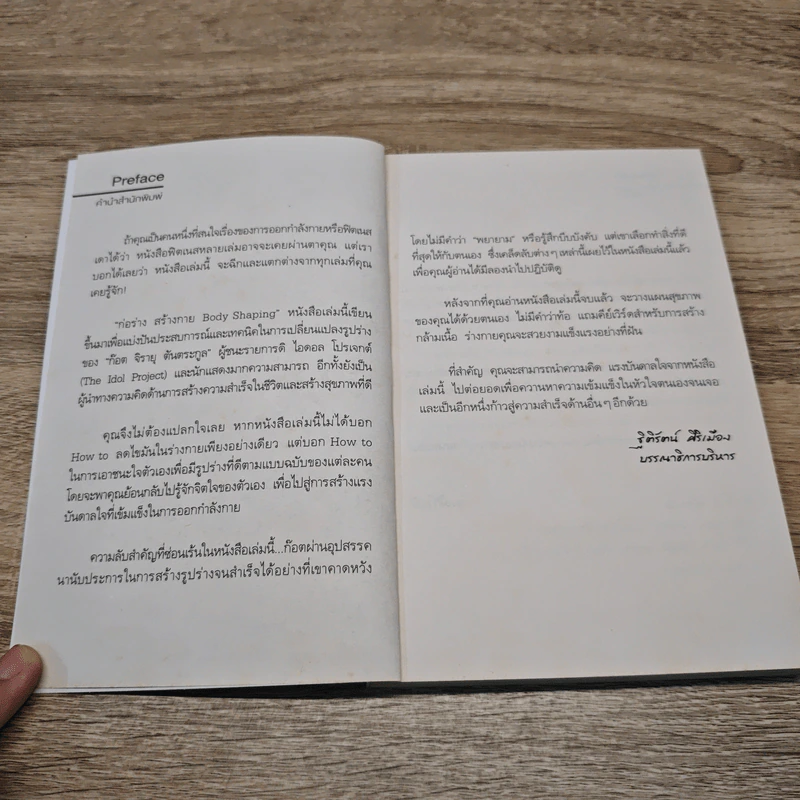 Preface
คำนำสำนักพิมพ์
ถ้าคุณเป็นคนหนึ่งที่สนใจเรื่องของการออกกำลังกายหรือฟิตเนส
เดาได้ว่า หนังสือฟิตเนสหลายเล่มอาจจะเคยผ่านตาคุณ แต่เรา
บอกได้เลยว่า หนังสือเล่มนี้ จะฉีกและแตกต่างจากทุกเล่มที่คุณ
เคยรู้จัก!
"ก่อร่าง สร้างกาย Body Shaping" หนังสือเล่มนี้เขียน
ขึ้นมาเพื่อแบ่งปันประสบการณ์และเทคนิคในการเปลี่ยนแปลงรูปร่าง
ของ "ก๊อต จิรายุ ตันตระกูล" ผู้ชนะรายการดิ ไอดอล โปรเจกต์
(The Idol Project) และนักแสดงมากความสามารถ อีกทั้งยังเป็น
ผู้นำทางความคิดด้านการสร้างความสำเร็จในชีวิตและสร้างสุขภาพที่ดี
คุณจึงไม่ต้องแปลกใจเลย หากหนังสือเล่มนี้ไม่ได้บอก
How to ลดไขมันในร่างกายเพียงอย่างเดียว แต่บอก How to
ในการเอาชนะใจตัวเองเพื่อมีรูปร่างที่ดีตามแบบฉบับของแต่ละคน
โดยจะพาคุณย้อนกลับไปรู้จักจิตใจของตัวเอง เพื่อไปสู่การสร้างแรง
บันดาลใจที่เข้มแข็งในการออกกำลังกาย
ความลับสำคัญที่ซ่อนเร้นในหนังสือเล่มนี้...ก๊อตผ่านอุปสรรค
นานัปประการในการสร้างรูปร่างจนสำเร็จได้อย่างที่เขาคาดหวัง
โดยไม่มีคำว่า "พยายาม" หรือรู้สึกบีบบังคับ แต่เขาเลือกทำสิ่งที่ดี
ที่สุดให้กับตนเอง ซึ่งเคล็ดลับต่างๆ เหล่านี้เผยไว้ในหนังสือเล่มนี้แล้ว
เพื่อคุณผู้อ่านได้มีลองนำไปปฏิบัติดู
หลังจากที่คุณอ่านหนังสือเล่มนี้จบแล้ว จะวางแผนสุขภาพ
ของคุณได้ด้วยตนเอง ไม่มีคำว่าท้อ แถมคีย์เวิร์ดสำหรับการสร้าง
กล้ามเนื้อ ร่างกายคุณจะสวยงามแข็งแรงอย่างที่ฝัน
ที่สำคัญ คุณจะสามารถนำความคิด แรงบันดาลใจจากหนังสือ
เล่มนี้ ไปต่อยอดเพื่อควานหาความเข้มแข็งในหัวใจตนเองจนเจอ
และเป็นอีกหนึ่งก้าวสู่ความสำเร็จด้านอื่นๆ อีกด้วย
ฐิติรัตน์ ศิริเมือง
บรรณาธิการบริหาร